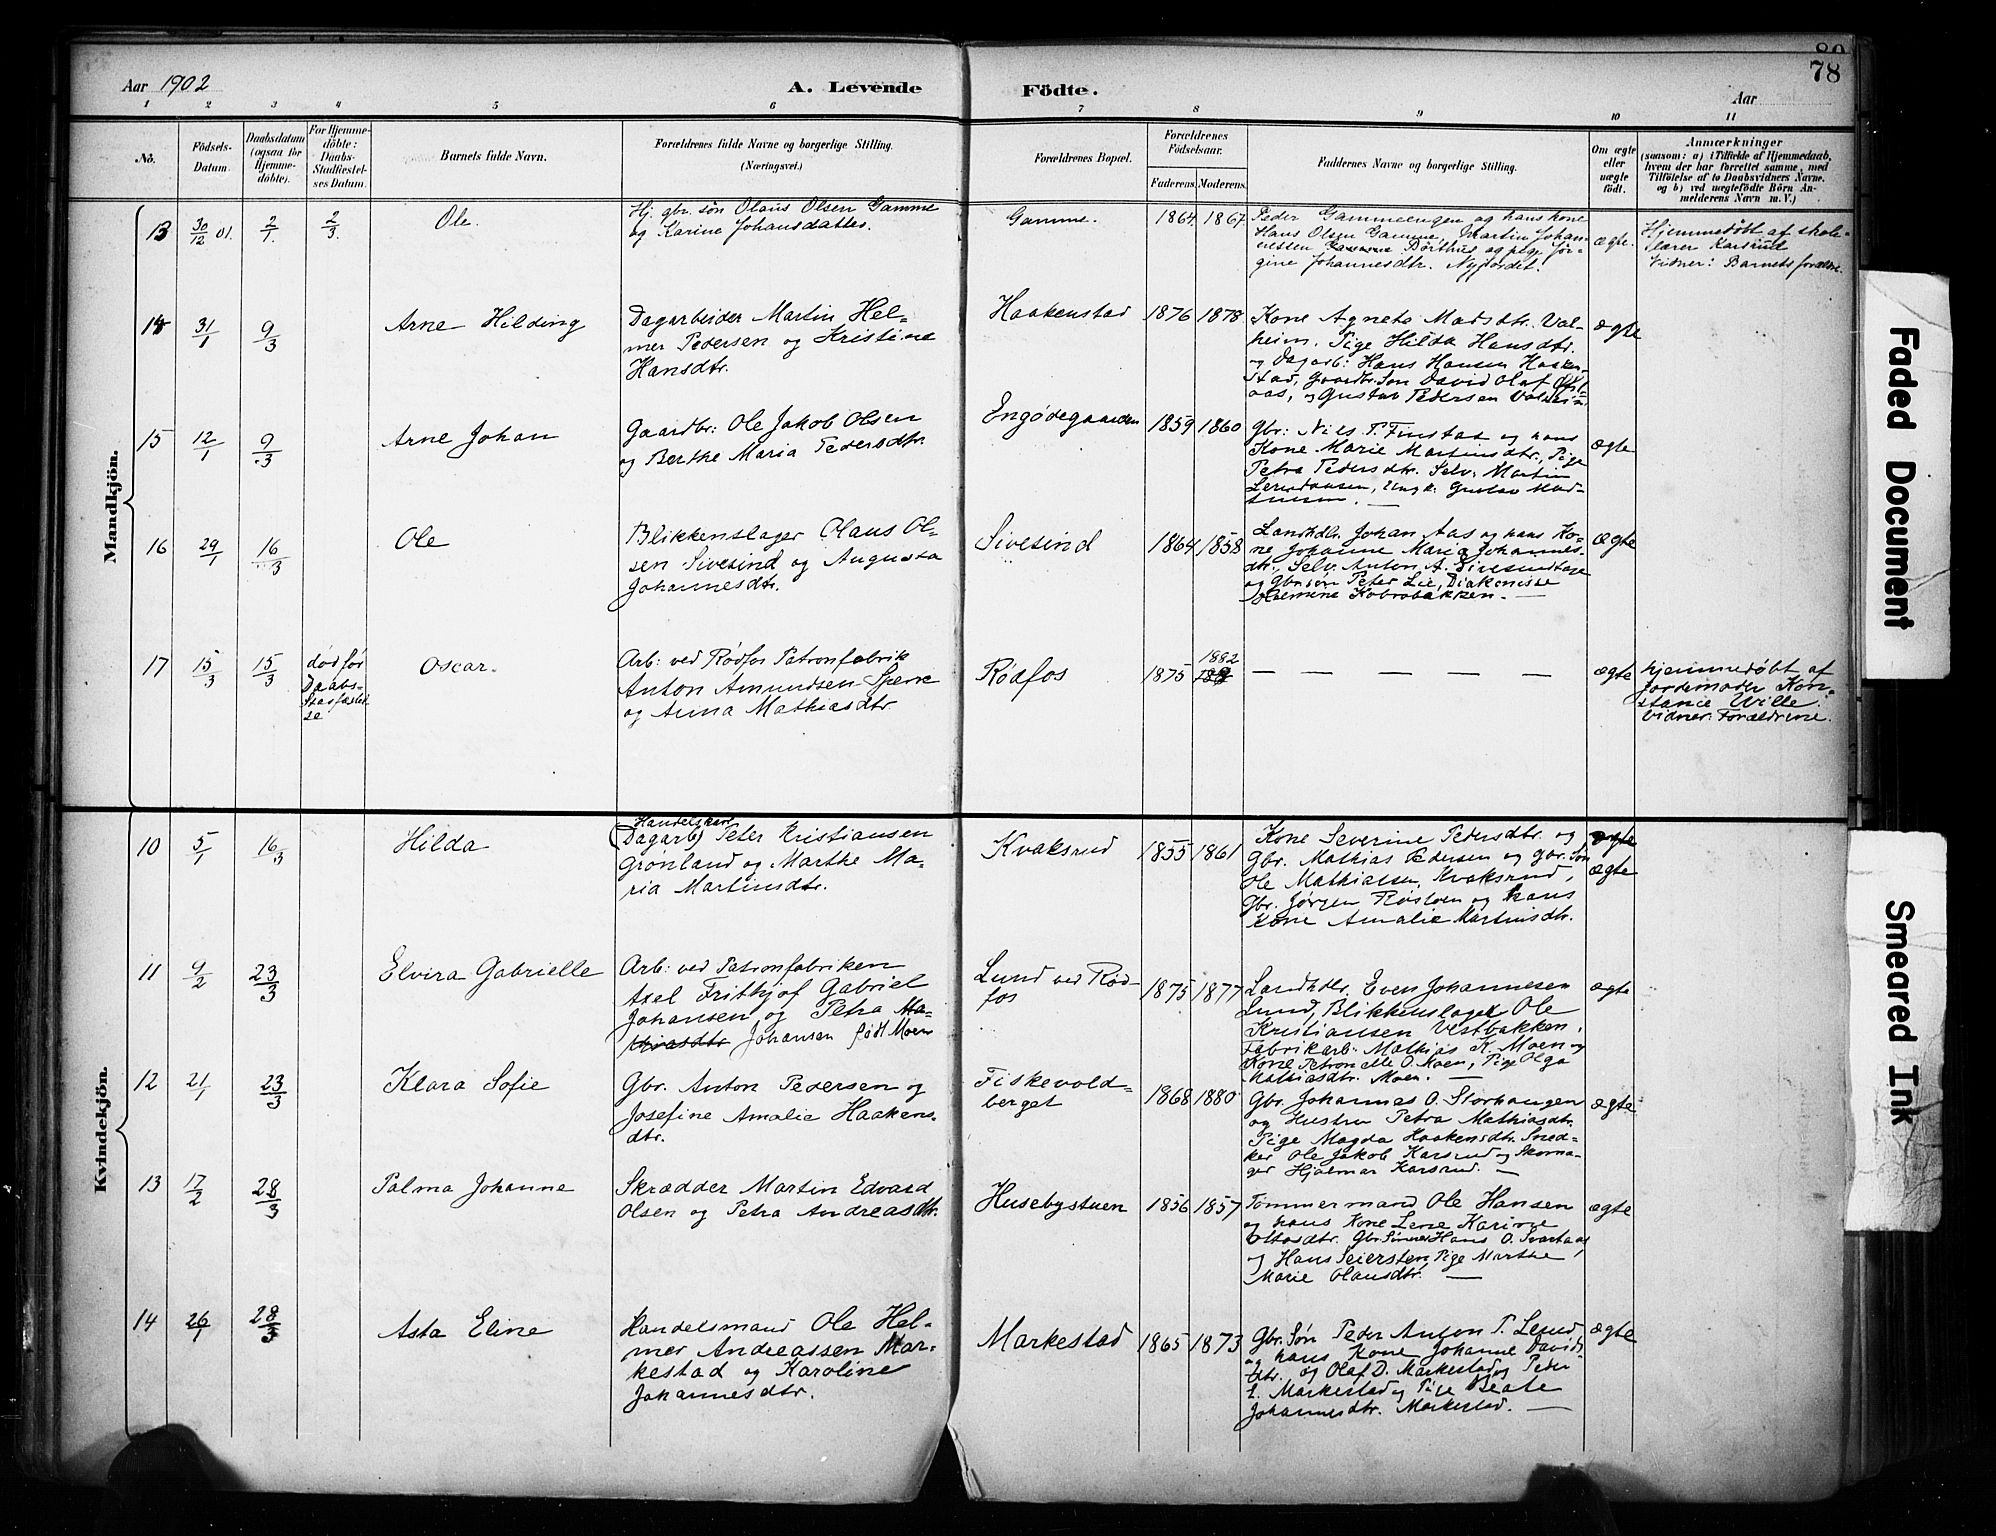 80
78
Aar 1902
A. Levende
Födte.
Aar
1 2 3 4 5 6 7 8 9 10 11
No.
Födsels-
Datum.
Daabsdatum
(ogsaa for
Hjemme-
döbte).
For Hjemme-
döbte:
Daabs-
Stadfæstel-
ses Datum.
Barnets fulde Navn.
Forældrenes fulde Navne og borgerlige Stilling.
(Næringsvei.)
Forældrenes Bopæl.
Forældrenes
Födselsaar.
Faderens.
Moderens.
Faddernes Navne og borgerlige Stilling.
Om ægte
eller
uægte
födt.
Anmærkninger
(saasom: a) i Tilfælde af Hjemmedaab,
hvem der har forrettet samme, med
Tilföielse af to Daabsvidners Navne,
og b) ved uægtefödte Börn An-
melderens Navn m. V.)
Mandkjön.
13
30/12 01.
2/1
2/3
Ole
Hj. gbr. søn Olaus Olsen Gamme
og Karine Johansdatter.
Gamme.
1864
1867
Peder Gammeengen og hans kone
Hans Olsen Gamme, Martin Johan-
nessen Børthus og pige Jør-
gine Johannesdtr. Nyjordet.
ægte.
Hjemmedøbt af skole-
lærer Karsrud
Vidner: Barnets forældre.
14
31/1
9/3
Arne Hilding
Dagarbeider Martin Hel-
mer Pedersen og Kristine
Hansdtr.
Haakenstad
1876
1878
Kone Agnete Madsdtr. Val-
heim, Pige Hilda Hansdtr.
og Dagarb: Hans Hansen Haaken-
stad, Gaardbr. Søn David Olaf
aas, og Gustav Pedersen Valheim
ægte
15
12/1
9/3
Arne Johan
Gaardbr: Ole Jakob Olsen
og Berthe Maria Pedersdtr.
Engødegaarden
1859
1860
Gbr: Niels P. Finstad og hans
Kone Marie Martinsdtr., Pige
Petra Pedersdtr. Selv: Martin
Ungk. Gustav Mad-
ægte
16
29/1
16/3
Ole
Blikkenslager Olaus Ol-
sen Sivesind og Augusta
Johannesdtr.
Sivesind
1864
1858
Landhdlr. Johan Aas og hans Ko-
ne Johanne Maria Johannes-
dtr., Selv. Anton A. Sivesindtajet
og Gbr.søn Peter Lie, Diakonisse
Kobrobakken. —
ægte
17
15/3
15/3
død før
Daabs-
Stadfæstel-
se
Oscar
Arb: ved Rødfos Patronfabrik
Anton Amundsen Sperre
og Anna Mathiasdtr
Rødfos
1875
1882
— — — — —
ægte
hjemmedøbt af
Jordemoder Kon-
stance Wille
Vidner: Forældrene.
Kvindekjön.
10
5/1
16/3
Hilda
Handelskarl
(Dagarb) Peter Kristiansen
Grønland og Marthe Ma-
ria Martinsdtr.
Kvaksrud
1855
1861
Kone Severine Pedersdtr. og
Gbr. Mathias Pedersen og gbr. Søn
Ole Mathiasen, Kvaksrud,
Gbr. Jørgen Røsloen og hans
Kone Amalie Martinsdtr.
ægte
ægte
11
9/2
23/3
Elvira Gabrielle
Arb: ved Patronfabriken
Axel Frithjof Gabriel
Johansen og Petra Ma-
thiasdtr Johansen født Moen
Lund ved Rød-
fos
1875
1877
Landhdlr. Even Johannesen
Lund, Blikkenslager Ole
Kristiansen Vestbakken,
Fabrikarb: Mathias K. Moen og
Kone Petronelle O. Moen, Pige Olga
Mathiasdtr. Moen. —
ægte
12
21/1
23/3
Klara Sofie
Gbr. Anton Pedersen og
Josefine Amalie Haakens-
dtr.
Fiskevold-
berget
1868
1880
Gbr. Johannes O. Storhaugen
og Hustru Petra Mathiasdtr.
Pige Magda Haakensdtr. Sned-
ker Ole Jakob Karsrud og Skoma-
ger Hjalmar Karsrud. —
ægte
13
17/2
28/3
Palma Johanne
Skrædder Martin Edvard
Olsen og Petra Andreasdtr.
Husebystuen
1856
1857
Tømmermand Ole Hansen
og hans Kone Lene Karine
Ottosdtr. Gbr. Sønner Hans O. Svartaas
og Hans Seiersten, Pige Marthe
Marie Olausdtr. —
ægte
14
26/1
28/3
Asta Eline
Handelsmand Ole Hel-
mer Andreassen Mar-
kestad og Karoline
Johannesdtr.
Markestad
1865
1873
Gbr. Søn Peder Anton P. Lund,
og hans Kone Johanne Davids-
dtr. og Olaf D. Markestad og Peder
L. Markestad og Pige Beate
Johannesdtr. Markestad. —
ægte
Faded Document
Smeared Ink